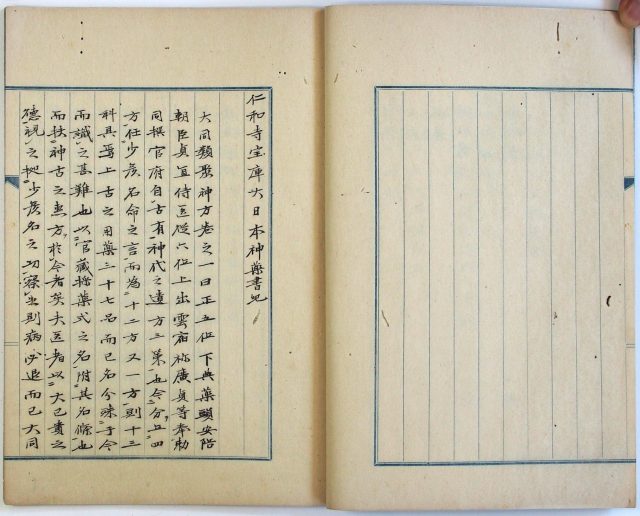 仁和寺宝庫大日本神薬書也
大同類聚神方巻之一曰正五位下典薬頭安陪
朝臣貞直侍医従六位上出雲宿祢廣貞等奉勅
同撰官府自古有神代之遺方三第也今分五四
方任少彦名命之言而為十二方又一方則十三
科具焉上古之用薬三十七品而已名今殊于今
而識之甚難也以官藏採薬式之名附其名條也
而扶神古之無方於今者矣夫医者以大已貴之
徳視之極少彦名之功察出則病必退而已大同